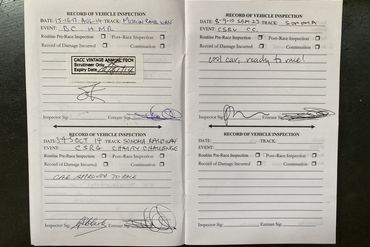 RECORD OF VEHICLE INSPECTION
DATE: 15-16-17 AUG-14 TRACK:
EVENT: BC HMR
Routine Pre-Race Inspection Post-Race Inspection
Record of Damage Incurred Continuation
CACC VINTAGE ANNUAL TECH
Scrutineer Only
Expiry Date
Inspector Sig: Entrant Sig:
RECORD OF VEHICLE INSPECTION
DATE: OCT 14 TRACK: SONOMA RACEWAY
EVENT: CSRG CHARITY CHALLENGE
Routine Pre-Race Inspection Post-Race Inspection
Record of Damage Incurred Continuation
CAR APPROVED TO RACE
Inspector Sig: Entrant Sig:
RECORD OF VEHICLE INSPECTION
DATE: 8-9-10 TRACK: SONOMA
EVENT: CSRG CC
Routine Pre-Race Inspection Post-Race Inspection
Record of Damage Incurred Continuation
cool car, ready to race!
Inspector Sig: Entrant Sig:
RECORD OF VEHICLE INSPECTION
DATE: TRACK:
EVENT:
Routine Pre-Race Inspection Post-Race Inspection
Record of Damage Incurred Continuation
Inspector Sig: Entrant Sig: